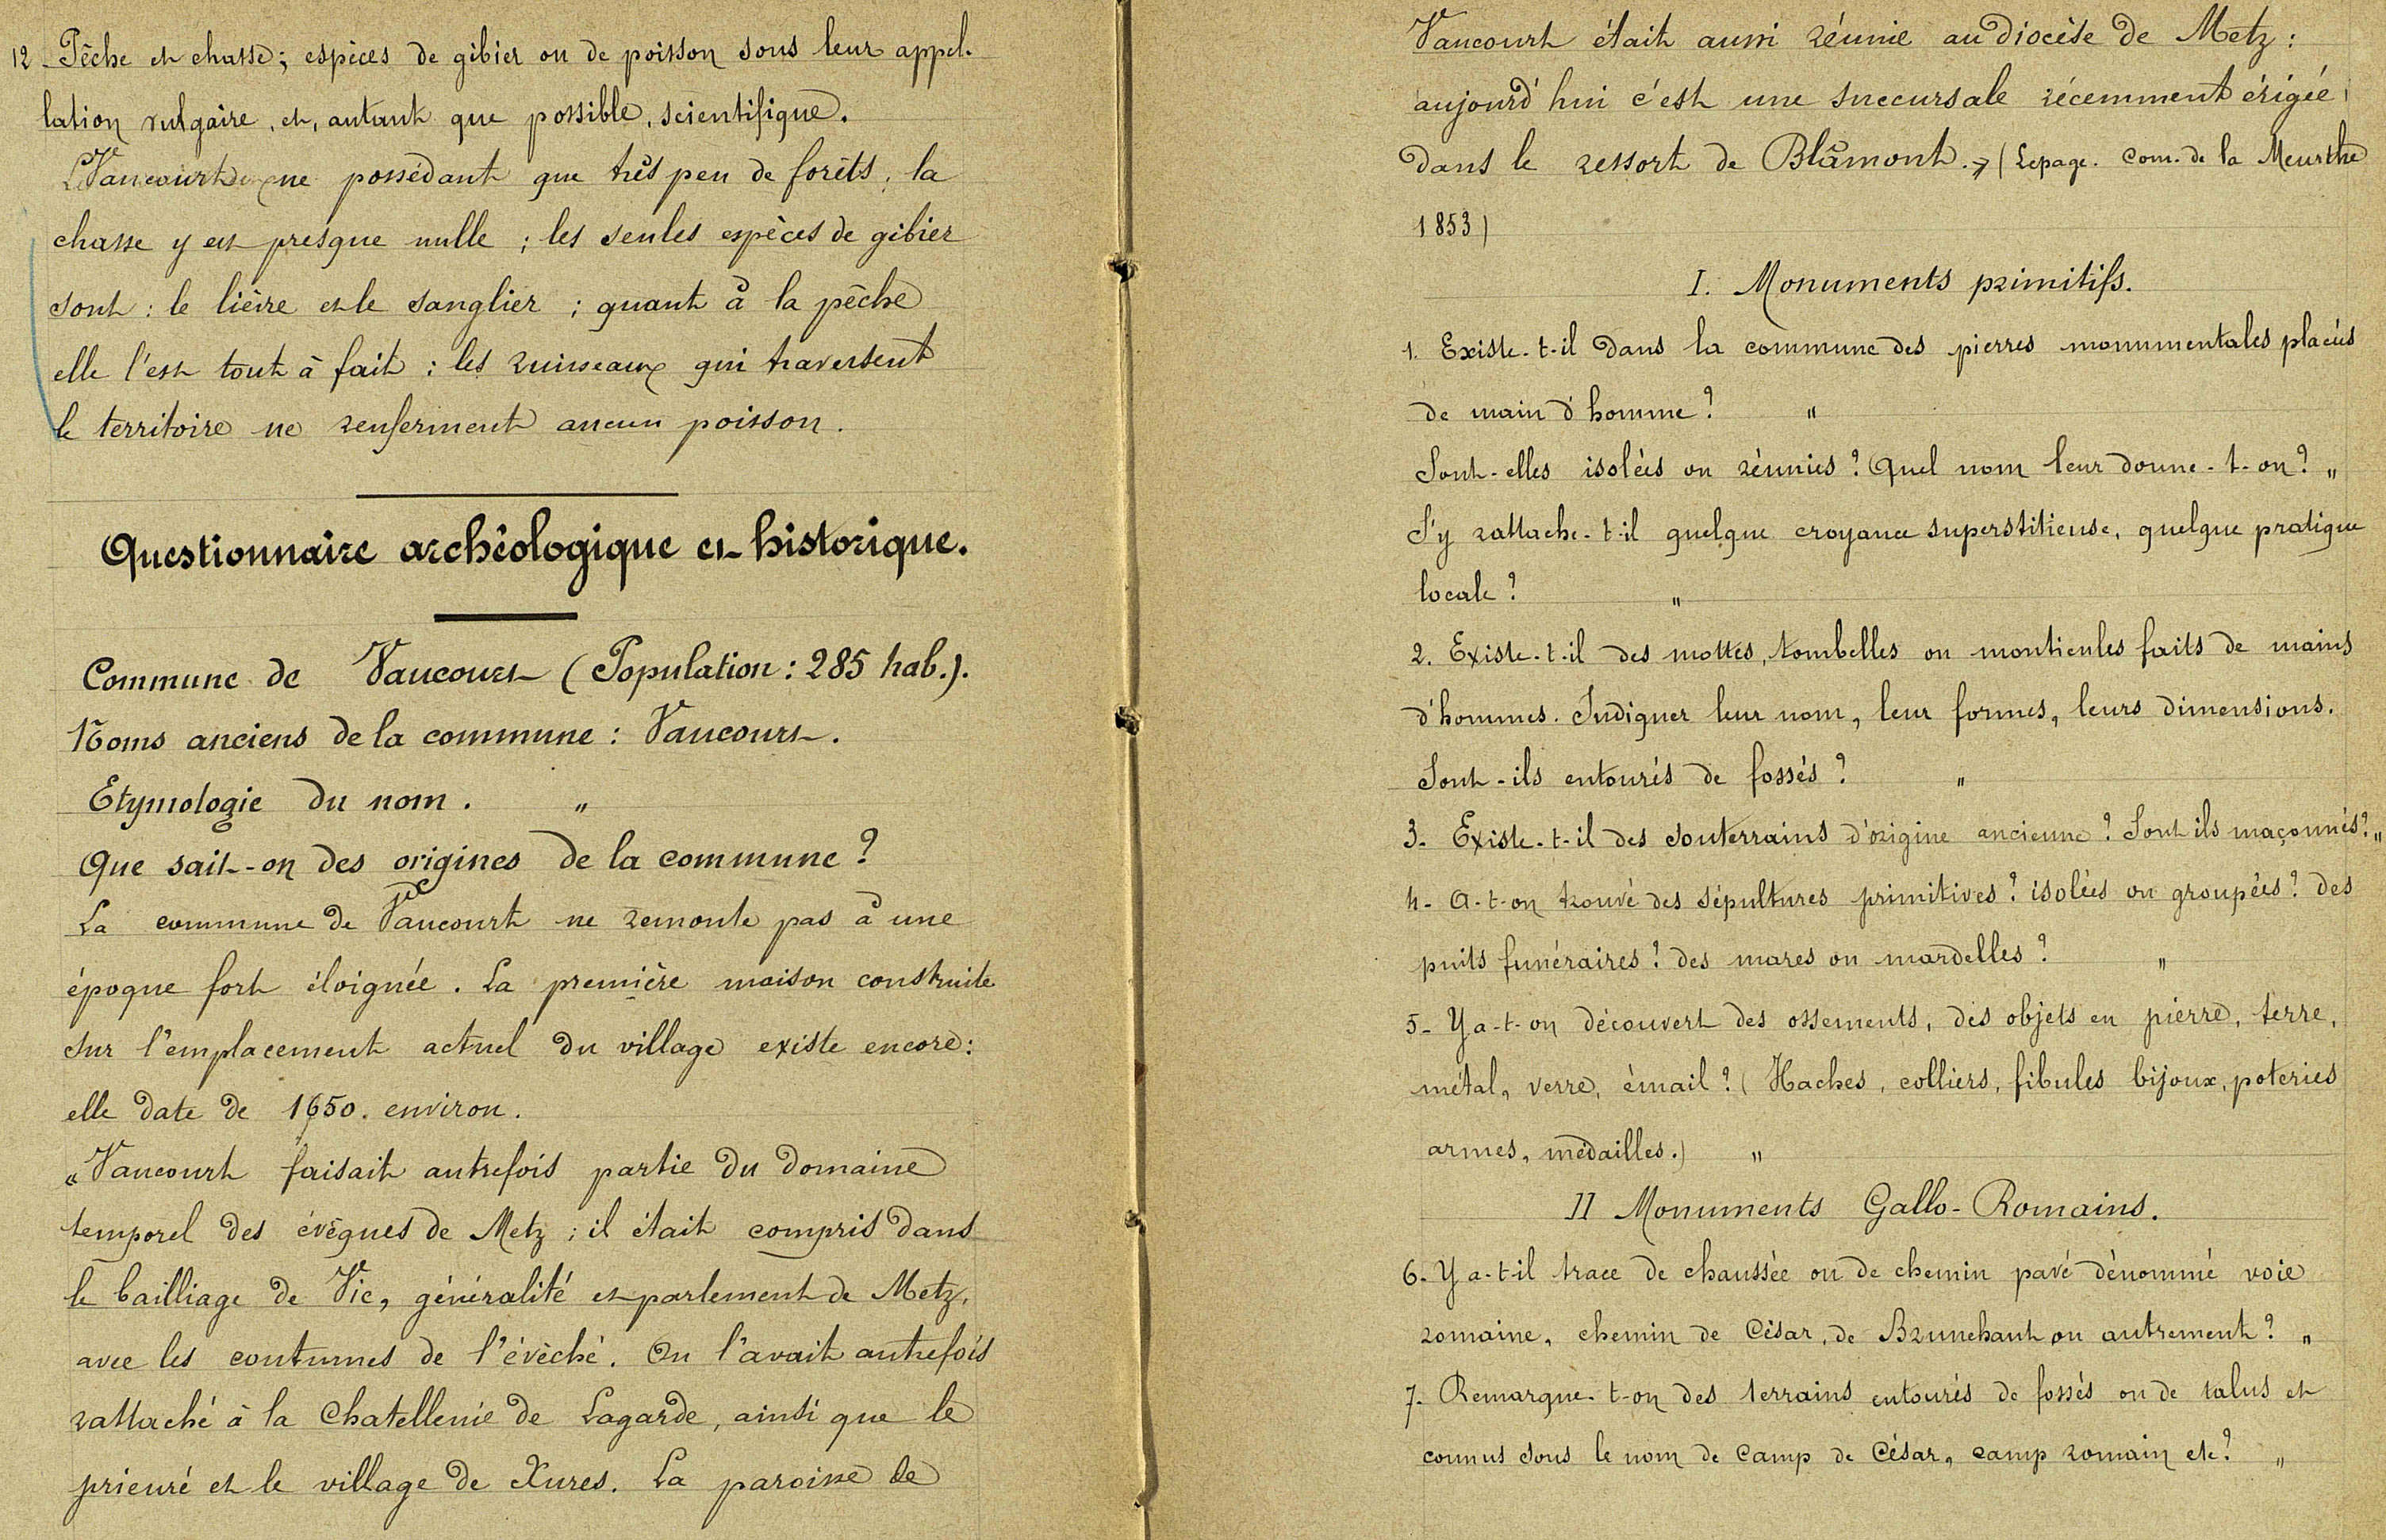 12 - Pêche et chasse ; espèces de gibier ou de poisson sous leur appel-
lation vulgaire, et, autant que possible, scientifique.
Vaucourt ne possédant que très peu de forêts, la
chasse y est presque nulle ; les seules espèces de gibier
sont : le lièvre et le sanglier ; quant à la pêche
elle l'est tout à fait : les ruisseaux qui traversent
le territoire ne renferment aucun poisson.
Questionnaire archéologique et historique.
Commune de Vaucourt (Population : 285 hab.).
Noms anciens de la commune : Vaucourt.
Etymologie du nom. "
Que sait-on des origines de la commune ?
La commune de Vaucourt ne remonte pas à une
époque fort éloignée. La première maison construite
sur l'emplacement actuel du village existe encore :
elle date de 1650. environ.
« Vaucourt faisait autrefois partie du domaine
temporel des évêques de Metz ; il était compris dans
le bailliage de Vic, généralité et parlement de Metz,
avec les coutumes de l'évêché. On l'avait autrefois
rattaché à la Chatellenie de Lagarde, ainsi que le
prieuré et le village de Xures. La paroisse de
Vaucourt était aussi réunie au diocèse de Metz :
aujourd'hui c'est une succursale récemment érigée,
dans le ressort de Blâmont. » (Lepage. Com. de la Meurthe
1853)
I. Monuments primitifs.
1. Existe-t-il dans la commune des pierres monumentales placées
de main d'homme ? "
Sont-elles isolées ou réunies ? Quel nom leur donne-t-on ? "
S'y rattache-t-il quelque croyance superstitieuse, quelque pratique
locale ? "
2. Existe-t-il des mottes, tombelles ou monticules faits de mains
d'hommes. Indiquer leur nom, leur formes, leurs dimensions.
Sont-ils entourés de fossés ? "
3. Existe-t-il des souterrains d'origine ancienne ? Sont ils maçonnés ? "
4. A-t-on trouvé des sépultures primitives ? isolées ou groupées ? des
puits funéraires ? des mares ou mardelles ? "
5. Y a-t-on découvert des ossements, des objets en pierre, terre,
métal, verre, émail ? (Haches, colliers, fibules bijoux, poteries
armes, médailles.) "
II Monuments Gallo-Romains.
6. Y a-t-il trace de chaussée ou de chemin pavé dénommé voie
romaine, chemin de César, de Brunehaut ou autrement ? "
7. Remarque-t-on des terrains entourés de fossés ou de talus et
connus sous le nom de Camp de César, camp romain etc ? "